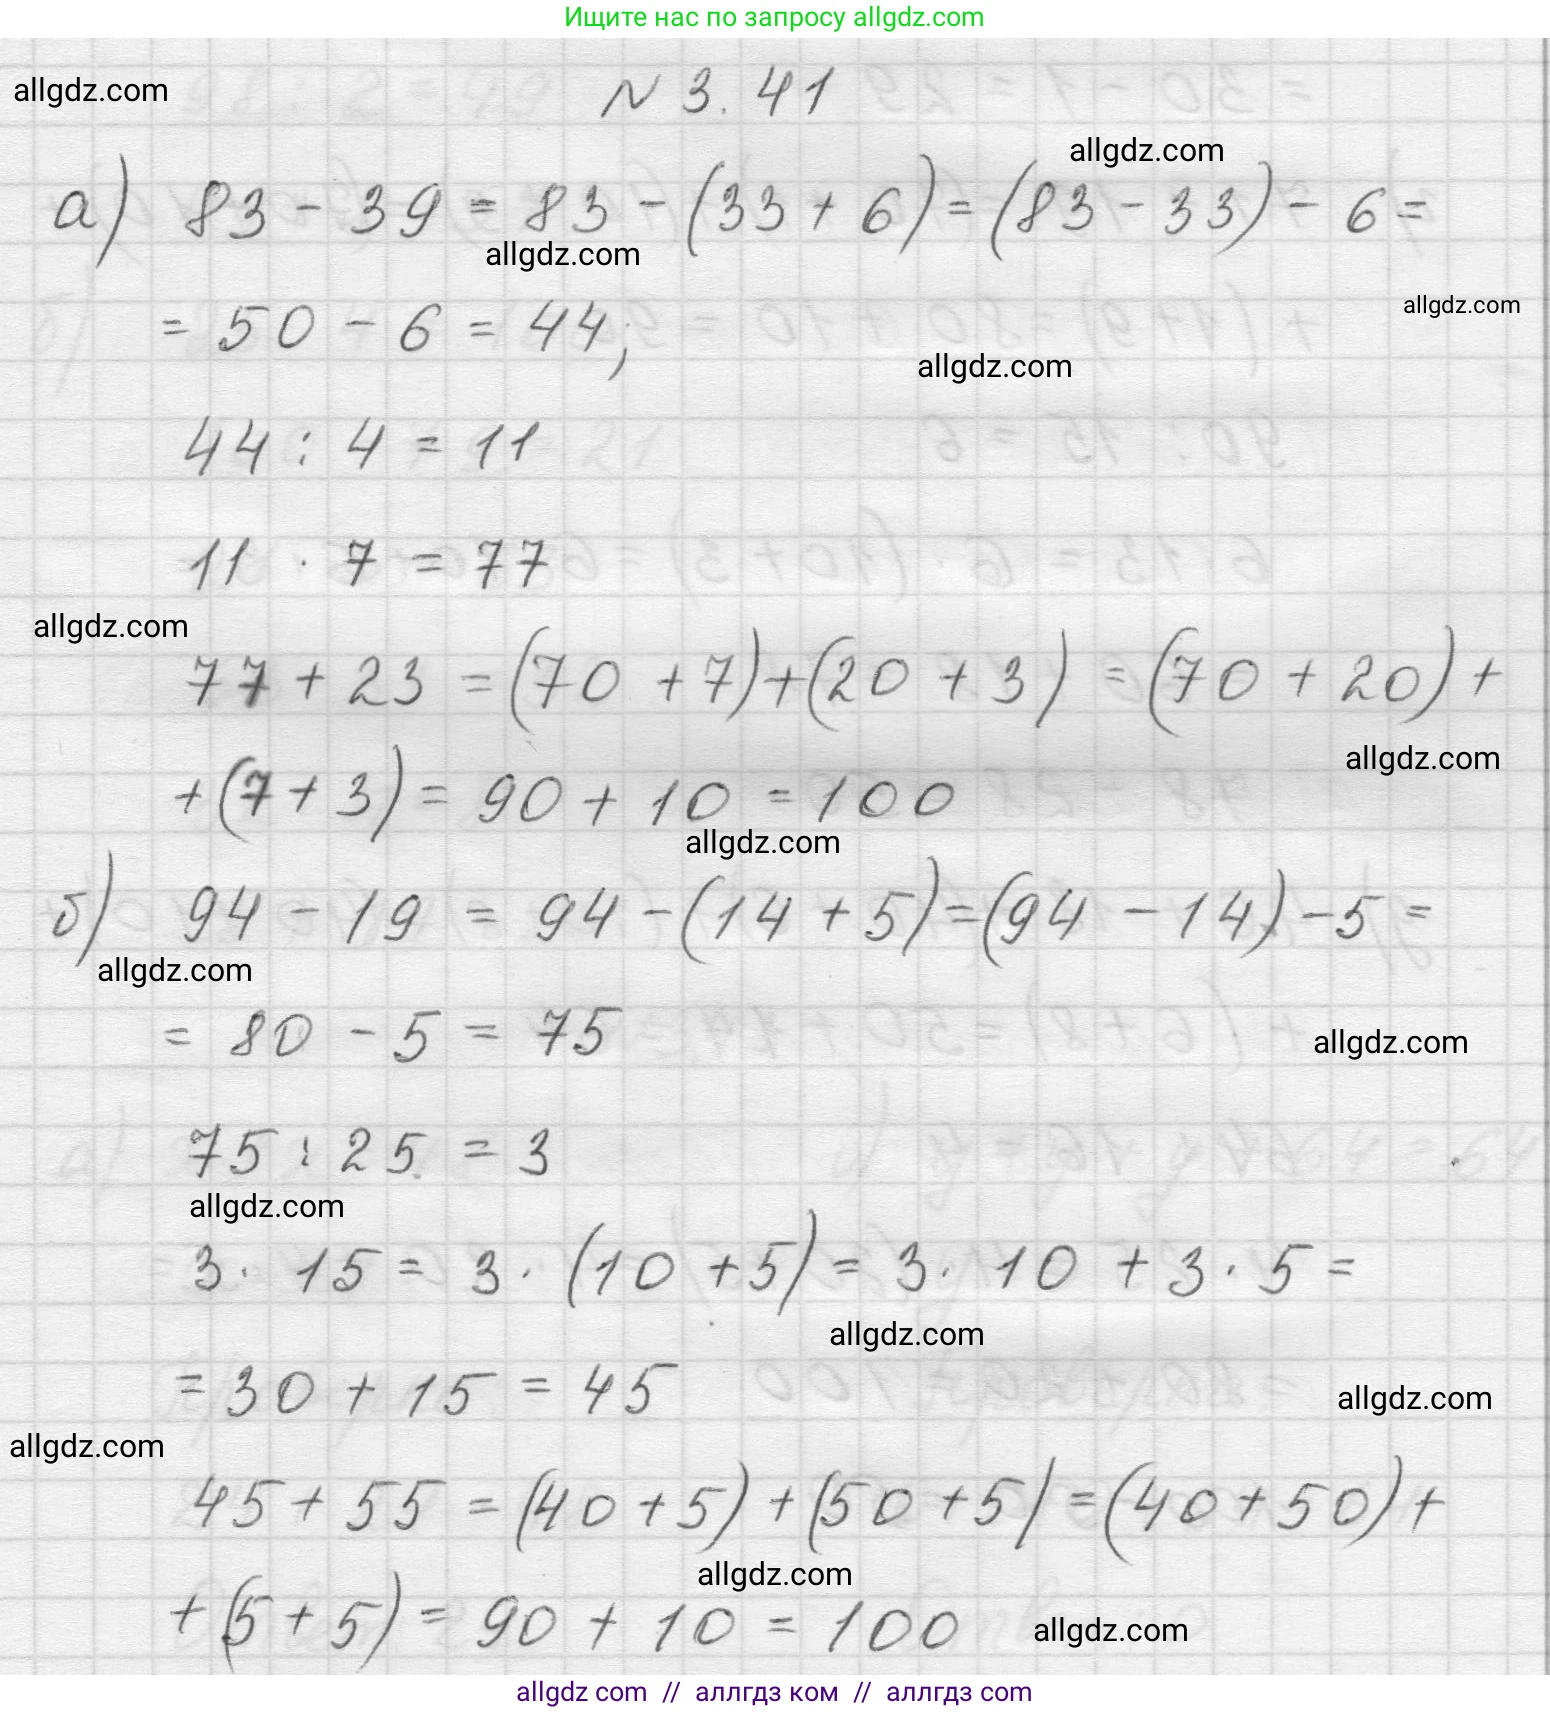 Ищите нас по запросу allgdz.com
allgdz.com
N 3.41
allgdz.com
а) 83 - 39 = 83 - (33 + 6) = (83 - 33) - 6 =
allgdz.com
allgdz.com
= 50 - 6 = 44;
allgdz.com
44 : 4 = 11
11 · 7 = 77
allgdz.com
77 + 23 = (70 + 7) + (20 + 3) = (70 + 20) +
allgdz.com
+ (7 + 3) = 90 + 10 = 100
allgdz.com
б) 94 - 19 = 94 - (14 + 5) = (94 - 14) - 5 =
allgdz.com
= 80 - 5 = 75
allgdz.com
75 : 25 = 3
allgdz.com
3 · 15 = 3 · (10 + 5) = 3 · 10 + 3 · 5 =
allgdz.com
= 30 + 15 = 45
allgdz.com
allgdz.com
45 + 55 = (40 + 5) + (50 + 5) = (40 + 50) +
allgdz.com
+ (5 + 5) = 90 + 10 = 100
allgdz.com
allgdz com // аллгдз ком // аллгдз com